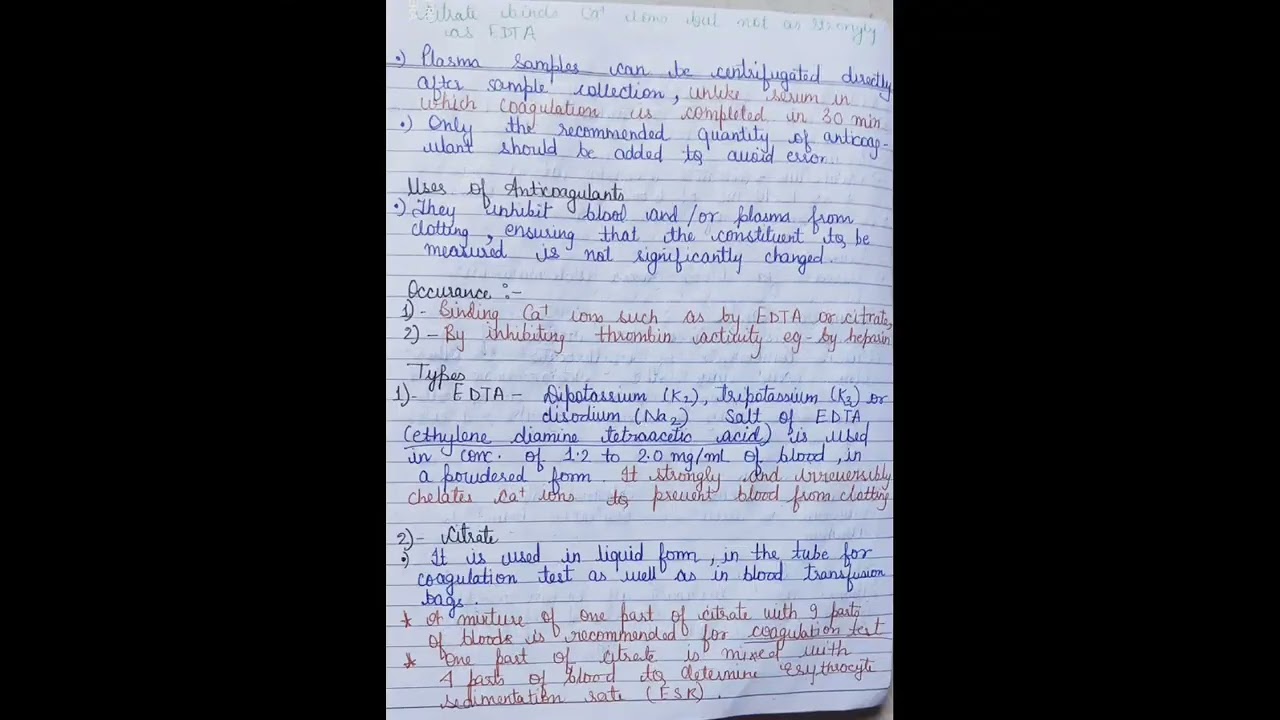 Citrate binds Ca⁺ ions but not as strongly
as EDTA
•) Plasma samples can be centrifugated directly
after sample collection, unlike serum in
which coagulation is completed in 30 min.
•) Only the recommended quantity of anticoag-
ulant should be added to avoid error.
Uses of Anticoagulants
•) They inhibit blood and/or plasma from
clotting, ensuring that the constituent to be
measured is not significantly changed.
Occurance :-
1)- Binding Ca⁺ ions such as by EDTA or citrate,
2) - By inhibiting thrombin activity eg- by heparin
Types
1)- EDTA - Dipotassium (K₂), tripotassium (K₃) or
disodium (Na₂) salt of EDTA
(ethylene diamine tetraacetic acid) is used
in conc. of 1.2 to 2.0 mg/ml of blood, in
a powdered form. It strongly and irreversibly
chelates Ca⁺ ions to prevent blood from clotting
2)- Citrate
•) It is used in liquid form, in the tube for
coagulation test as well as in blood transfusion
bags.
* A mixture of one part of citrate with 9 parts
of bloods is recommended for coagulation test
* One part of citrate is mixed with
4 parts of blood to determine erythrocyte
sedimentation rate (ESR).